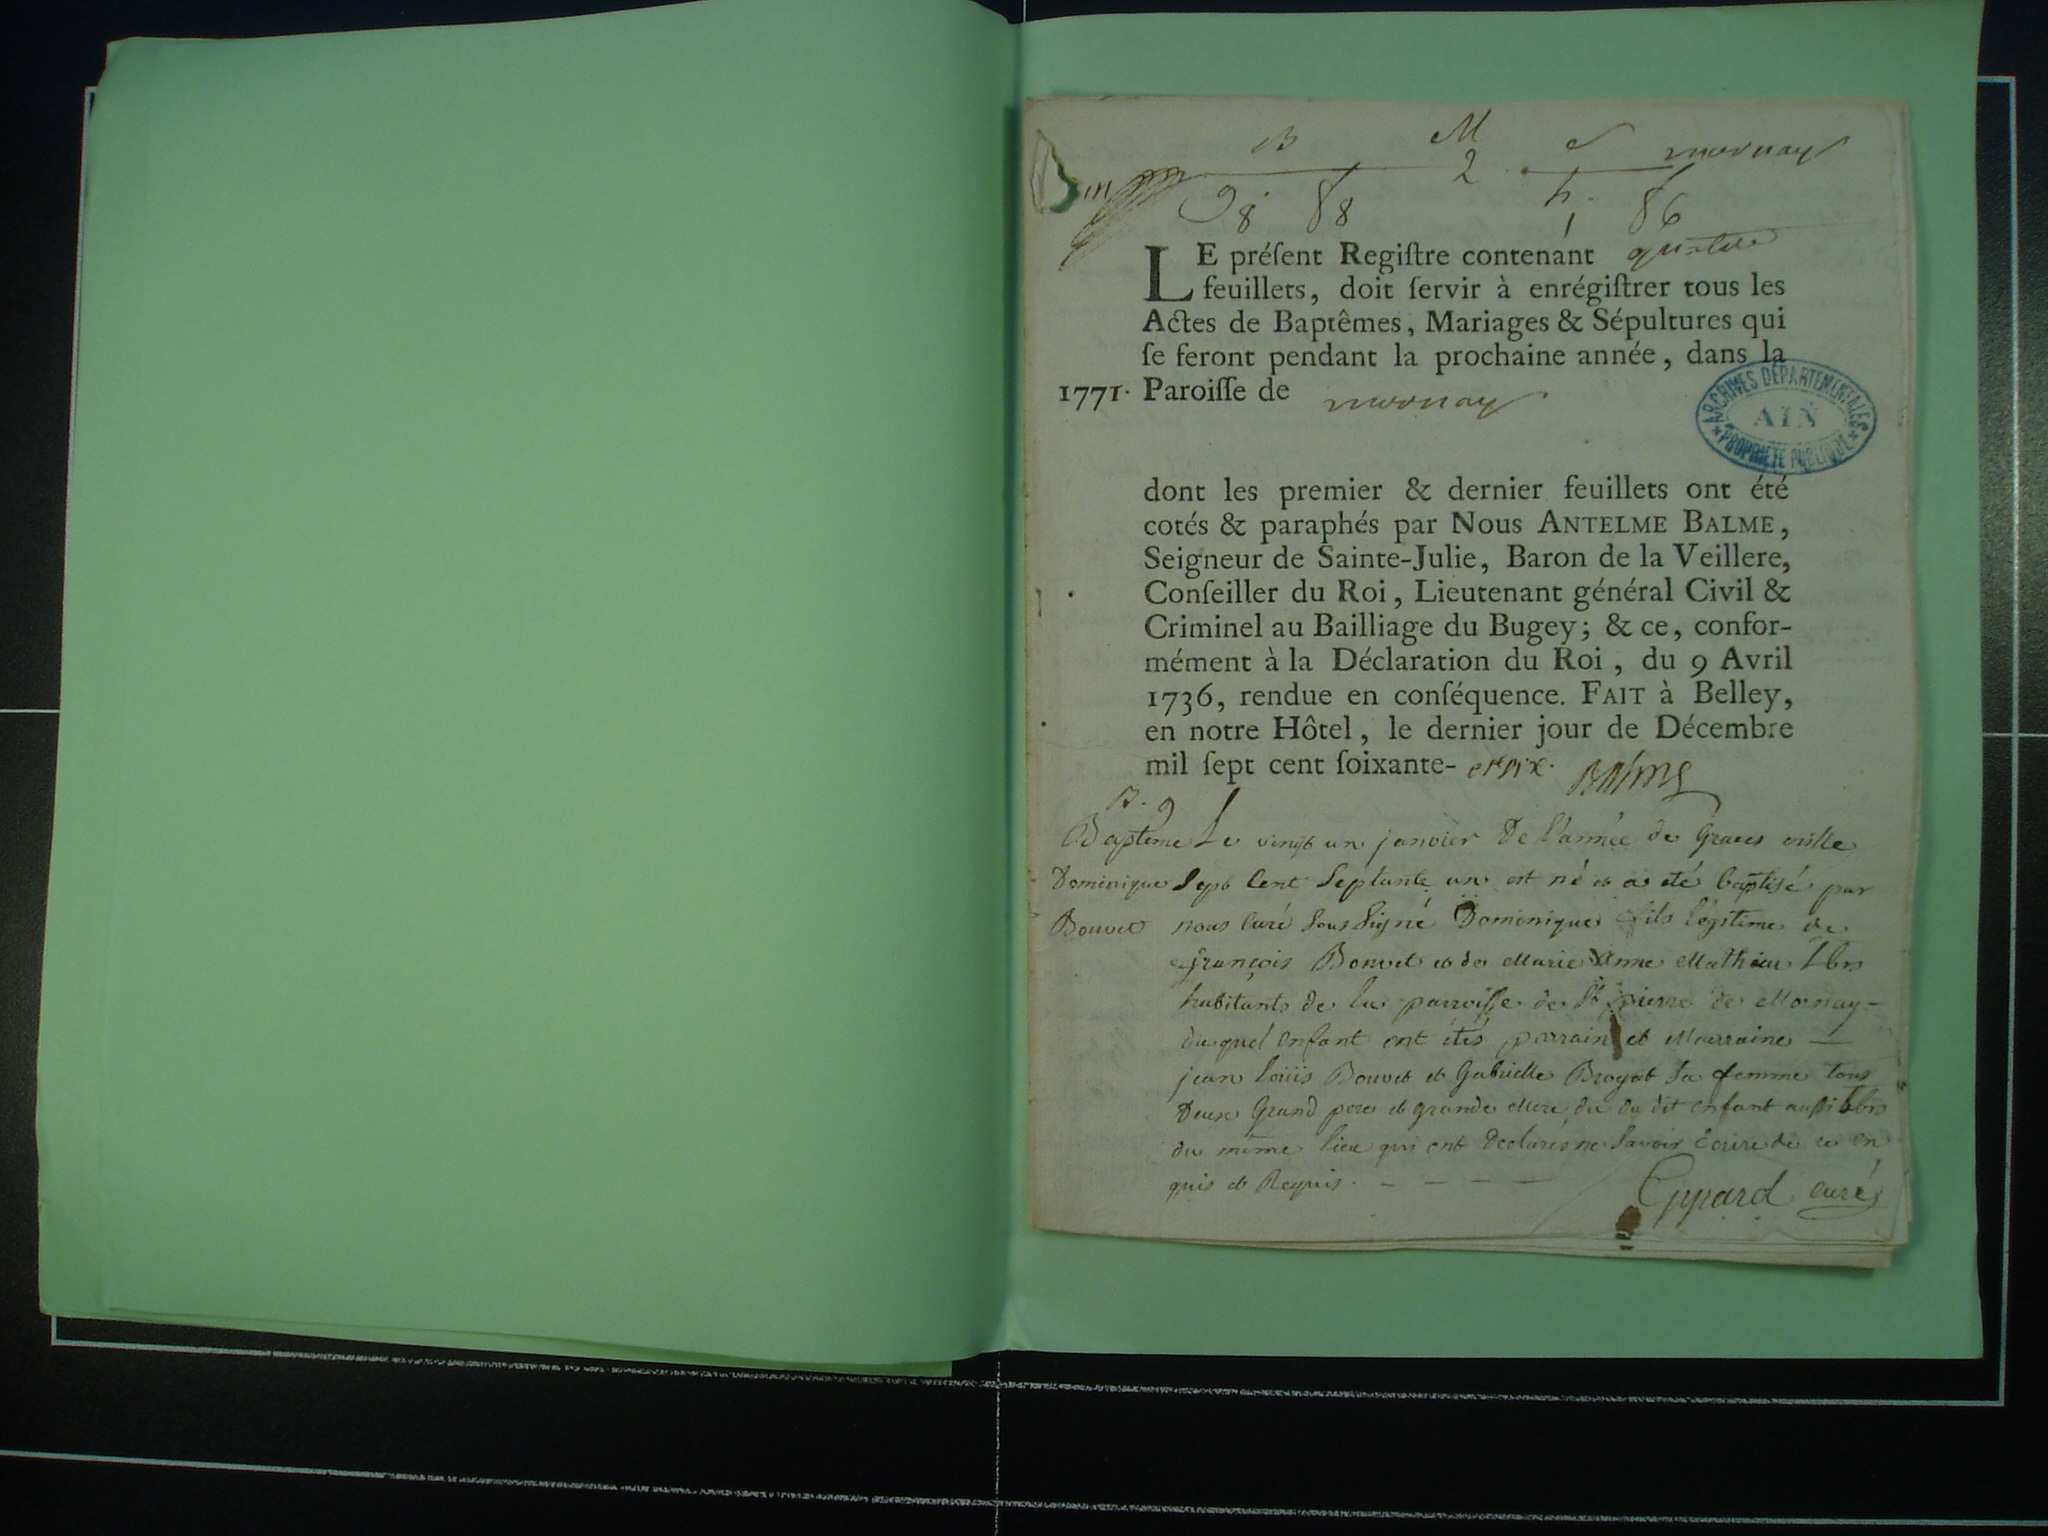 B M S mornay
2
9 88 h. 86
8 1
LE préſent Regiſtre contenant quatre
feuillets, doit ſervir à enrégiſtrer tous les
Actes de Baptêmes, Mariages & Sépultures qui
ſe feront pendant la prochaine année, dans la
1771. Paroiſſe de mornay
ARCHIVES DÉPARTEMENTALES
AIN
PROPRIÉTÉ PUBLIQUE
dont les premier & dernier feuillets ont été
cotés & paraphés par Nous ANTELME BALME,
Seigneur de Sainte-Julie, Baron de la Veillere,
Conſeiller du Roi, Lieutenant général Civil &
Criminel au Bailliage du Bugey; & ce, confor-
mément à la Déclaration du Roi, du 9 Avril
1736, rendue en conſéquence. FAIT à Belley,
en notre Hôtel, le dernier jour de Décembre
mil ſept cent ſoixante- et dix. Balme
B. 9
Baptême Le vingt un janvier De l'année de Graces mille
Dominique Sept Cent Septante un est né et a été baptisé par
Bouvet nous Curé Sous Signé Dominique fils légitime de
françois Bouvet et de Marie Anne Mathieu lbrs
habitants de la parroisse de St pierre de Mornay -
du quel enfant ont étés parrain et Marraine —
jean loüis Bouvet et Gabrielle Broyat sa femme tous
Deux Grand pere et grande Mere du du dit enfant aussi lbrs
du même lieu qui ont declarés ne Savoir Ecrire de ce en
quis et Requis. - - - -
curé